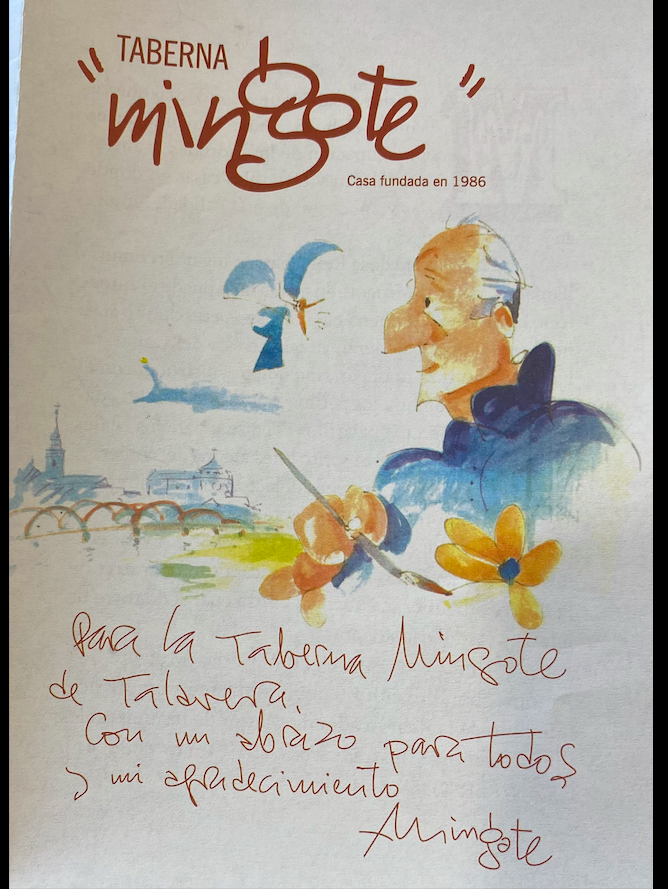 TABERNA
"mingote"
Casa fundada en 1986
Para la Taberna Mingote
de Talavera.
Con un abrazo para todos
y mi agradecimiento
Mingote